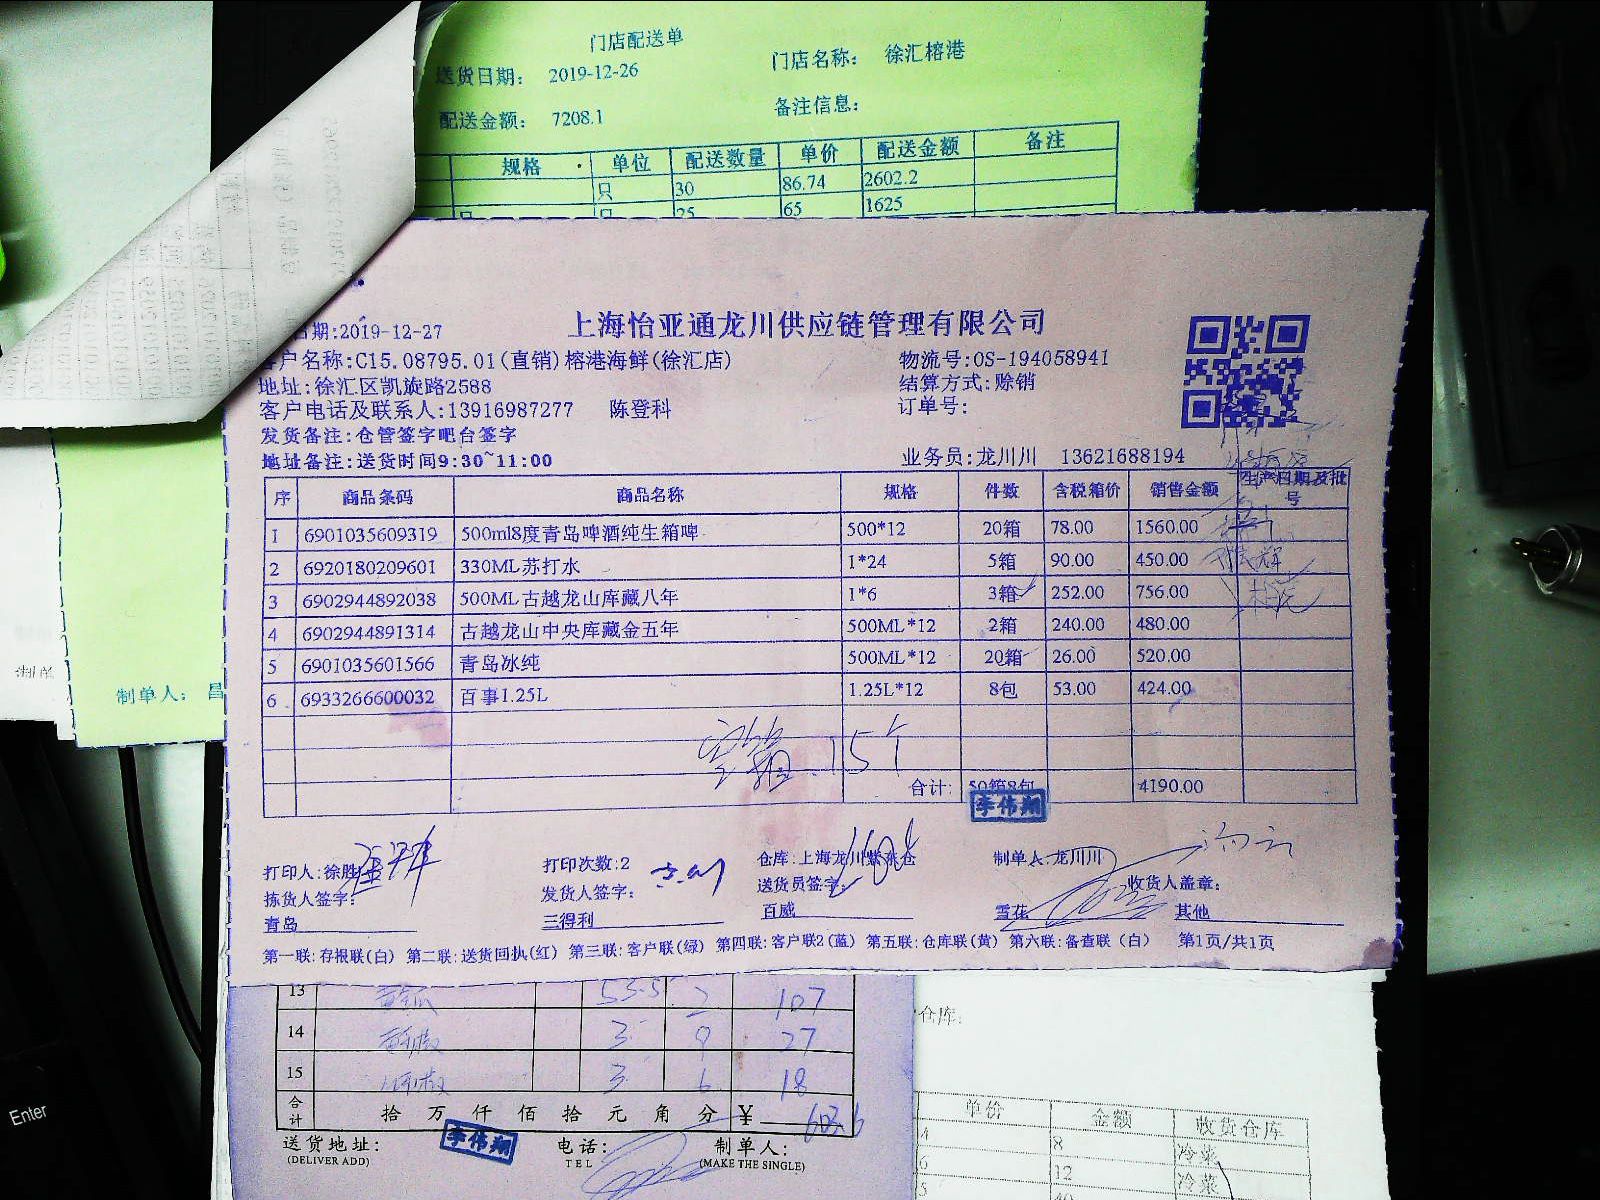 门店配送单
送货日期: 2019-12-26 门店名称: 徐汇榕港
配送金额: 7208.1 备注信息:
规格 单位 配送数量 单价 配送金额 备注
只 30 86.74 2602.2
只 25 65 1625
日期:2019-12-27 上海怡亚通龙川供应链管理有限公司
客户名称:C15.08795.01(直销)榕港海鲜(徐汇店) 物流号:OS-194058941
地址:徐汇区凯旋路2588 结算方式:赊销
客户电话及联系人:13916987277 陈登科 订单号:
发货备注:仓管签字吧台签字
地址备注:送货时间9:30~11:00 业务员:龙川川 13621688194
序 商品条码 商品名称 规格 件数 含税箱价 销售金额 生产日期及批号
1 6901035609319 500ml8度青岛啤酒纯生箱啤 500*12 20箱 78.00 1560.00
2 6920180209601 330ML苏打水 1*24 5箱 90.00 450.00
3 6902944892038 500ML古越龙山库藏八年 1*6 3箱 252.00 756.00
4 6902944891314 古越龙山中央库藏金五年 500ML*12 2箱 240.00 480.00
5 6901035601566 青岛冰纯 500ML*12 20箱 26.00 520.00
6 6933266600032 百事1.25L 1.25L*12 8包 53.00 424.00
空箱 15个
合计: 50箱8包 4190.00
李伟翔
打印人:徐胜 打印次数:2 仓库:上海龙川 制单人:龙川川
拣货人签字: 发货人签字: 送货员签字: 收货人盖章:
青岛 三得利 百威 雪花 其他
第一联:存根联(白) 第二联:送货回执(红) 第三联:客户联(绿) 第四联:客户联2(蓝) 第五联:仓库联(黄) 第六联:备查联(白) 第1页/共1页
制单
制单人: 昌
13 53.5 2 107
14 3 9 27
15 3 6 18
合计 拾 万 仟 佰 拾 元 角 分 ¥
送货地址: 李伟翔 电话: 制单人:
(DELIVER ADD) TEL (MAKE THE SINGLE)
仓库:
单价 金额 收货仓库
4 8 冷菜
6 12 冷菜
Enter